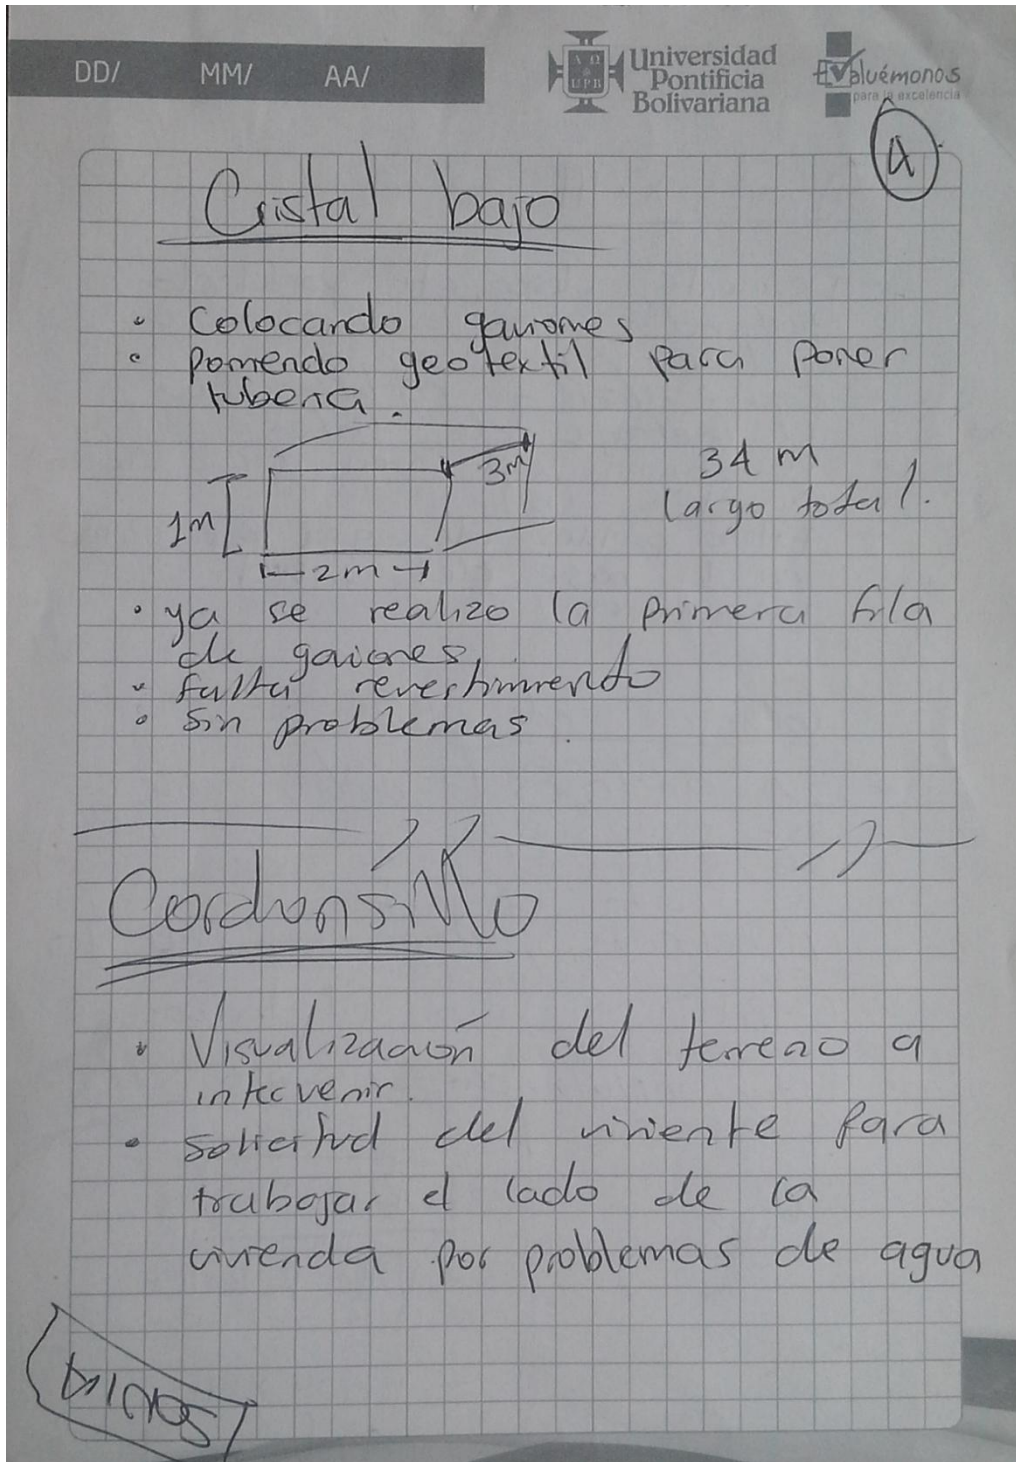 DD/ MM/ AA/
Universidad
Pontificia
Bolivariana
Evaluémonos
para la excelencia
A
Cristal bajo
• Colocando gaviones
• poniendo geotextil para poner
tuberia.
3m
34 m
1m
largo total.
2m
• ya se realizo la primera fila
de gaviones.
• falta revestimiento
• sin problemas.
Cordonsillo
• Visualización del terreno a
intervenir.
• Solicitud del viviente para
trabajar el lado de la
vivienda por problemas de agua